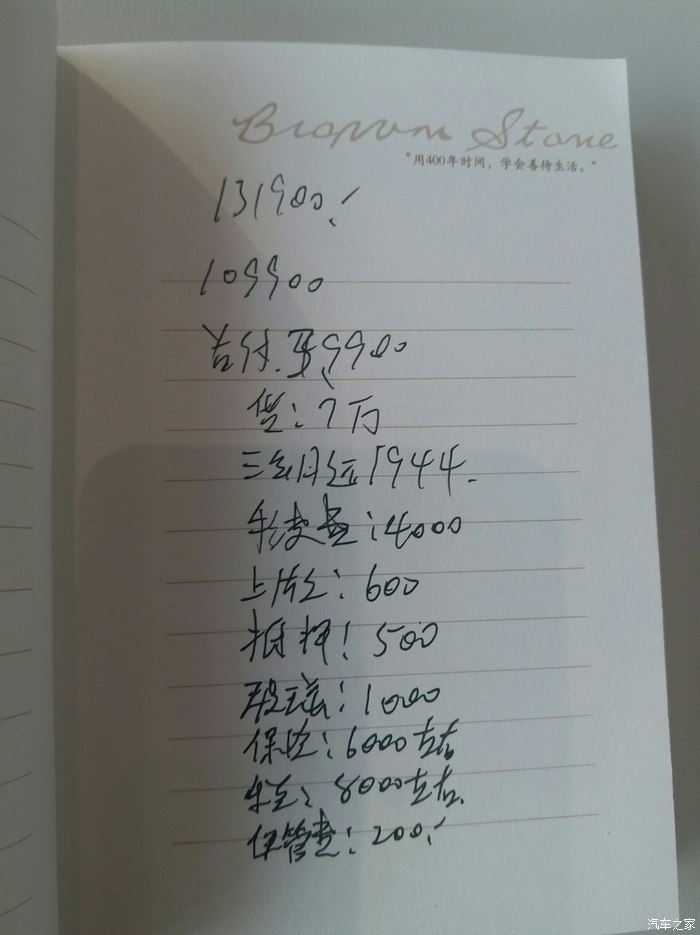 Brown Stone
"用400年时间，学会善待生活。"
131900.
109900
首付:39900
贷:7万
三年月还1944.
手续费:4000
上牌:600
抵押:500
1000
保险:6000左右
8000左右.
保管费:200.
汽车之家